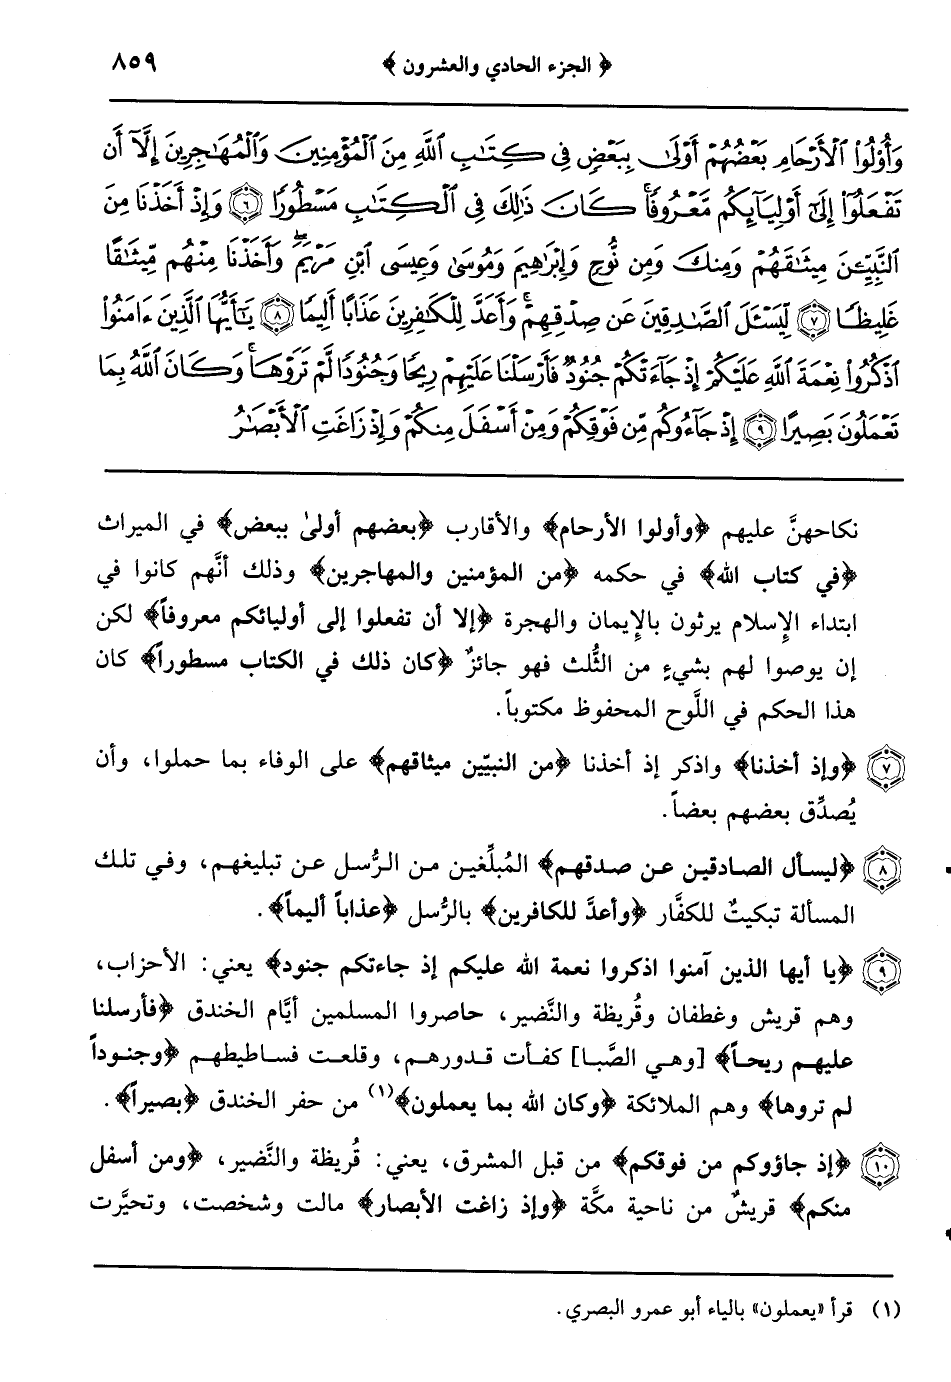 ﴿ الجزء الحادي والعشرون ﴾ ٨٥٩
وَأُوْلُواْ ٱلْأَرْحَامِ بَعْضُهُمْ أَوْلَىٰ بِبَعْضٍ فِى كِتَٰبِ ٱللَّهِ مِنَ ٱلْمُؤْمِنِينَ وَٱلْمُهَٰجِرِينَ إِلَّآ أَن
تَفْعَلُوٓاْ إِلَىٰٓ أَوْلِيَآئِكُم مَّعْرُوفًا ۚ كَانَ ذَٰلِكَ فِى ٱلْكِتَٰبِ مَسْطُورًا ۝٦ وَإِذْ أَخَذْنَا مِنَ
ٱلنَّبِيِّـۧنَ مِيثَٰقَهُمْ وَمِنكَ وَمِن نُّوحٍ وَإِبْرَٰهِيمَ وَمُوسَىٰ وَعِيسَى ٱبْنِ مَرْيَمَ ۖ وَأَخَذْنَا مِنْهُم مِّيثَٰقًا
غَلِيظًا ۝٧ لِّيَسْـَٔلَ ٱلصَّٰدِقِينَ عَن صِدْقِهِمْ ۚ وَأَعَدَّ لِلْكَٰفِرِينَ عَذَابًا أَلِيمًا ۝٨ يَٰٓأَيُّهَا ٱلَّذِينَ ءَامَنُواْ
ٱذْكُرُواْ نِعْمَةَ ٱللَّهِ عَلَيْكُمْ إِذْ جَآءَتْكُمْ جُنُودٌ فَأَرْسَلْنَا عَلَيْهِمْ رِيحًا وَجُنُودًا لَّمْ تَرَوْهَا ۚ وَكَانَ ٱللَّهُ بِمَا
تَعْمَلُونَ بَصِيرًا ۝٩ إِذْ جَآءُوكُم مِّن فَوْقِكُمْ وَمِنْ أَسْفَلَ مِنكُمْ وَإِذْ زَاغَتِ ٱلْأَبْصَٰرُ
نكاحهنَّ عليهم ﴿وأولوا الأرحام﴾ والأقارب ﴿بعضهم أولىٰ ببعض﴾ في الميراث
﴿في كتاب الله﴾ في حكمه ﴿من المؤمنين والمهاجرين﴾ وذلك أنَّهم كانوا في
ابتداء الإسلام يرثون بالإيمان والهجرة ﴿إلا أن تفعلوا إلى أوليائكم معروفاً﴾ لكن
إن يوصوا لهم بشيءٍ من الثُّلث فهو جائزٌ ﴿كان ذلك في الكتاب مسطوراً﴾ كان
هذا الحكم في اللَّوح المحفوظ مكتوباً.
٧ ﴿وإذ أخذنا﴾ واذكر إذ أخذنا ﴿من النبيّين ميثاقهم﴾ على الوفاء بما حملوا، وأن
يُصدِّق بعضهم بعضاً.
٨ ﴿ليسأل الصادقين عن صدقهم﴾ المُبلِّغين من الرُّسل عن تبليغهم، وفي تلك
المسألة تبكيتٌ للكفَّار ﴿وأعدَّ للكافرين﴾ بالرُّسل ﴿عذاباً أليماً﴾.
٩ ﴿يا أيها الذين آمنوا اذكروا نعمة الله عليكم إذ جاءتكم جنود﴾ يعني: الأحزاب،
وهم قريش وغطفان وقُريظة والنَّضير، حاصروا المسلمين أيَّام الخندق ﴿فأرسلنا
عليهم ريحاً﴾ [وهي الصَّبا] كفأت قدورهم، وقلعت فساطيطهم ﴿وجنوداً
لم تروها﴾ وهم الملائكة ﴿وكان الله بما يعملون﴾(١) من حفر الخندق ﴿بصيراً﴾.
١٠ ﴿إذ جاؤوكم من فوقكم﴾ من قبل المشرق، يعني: قُريظة والنَّضير، ﴿ومن أسفل
منكم﴾ قريشٌ من ناحية مكَّة ﴿وإذ زاغت الأبصار﴾ مالت وشخصت، وتحيَّرت
(١) قرأ «يعملون» بالياء أبو عمرو البصري.